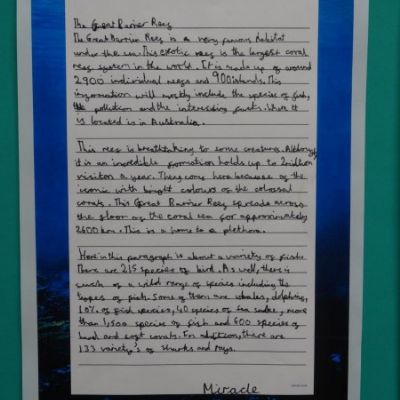 The Great Barrier Reef
The Great Barrier Reef is a very famous habitat
under the sea. This exotic reef is the largest coral
reef system in the world. It is made up of around
2900 individual reefs and 900 islands. This
information will mostly include the species of fish,
pollution and the interesting facts. Where it
is located is in Australia.
This reef is breathtaking to some creatures. Although
it is an incredible formation holds up to 2 million
visitors a year. They come here because of the
iconic with bright colours of the colossal
corals. This Great Barrier Reef spreads across
the floor of the coral sea for approximately
2600 km. This is a home to a plethora.
Here in this paragraph is about a variety of fish.
There are 215 species of bird. As well, there is
such of a wild range of species including the
types of fish. Some of them are whales, dolphins,
10% of fish species, 40 species of sea snake, more
than 1,500 species of fish and 600 species of
hard and soft corals. For addition, there are
133 variety's of sharks and rays.
Miracle